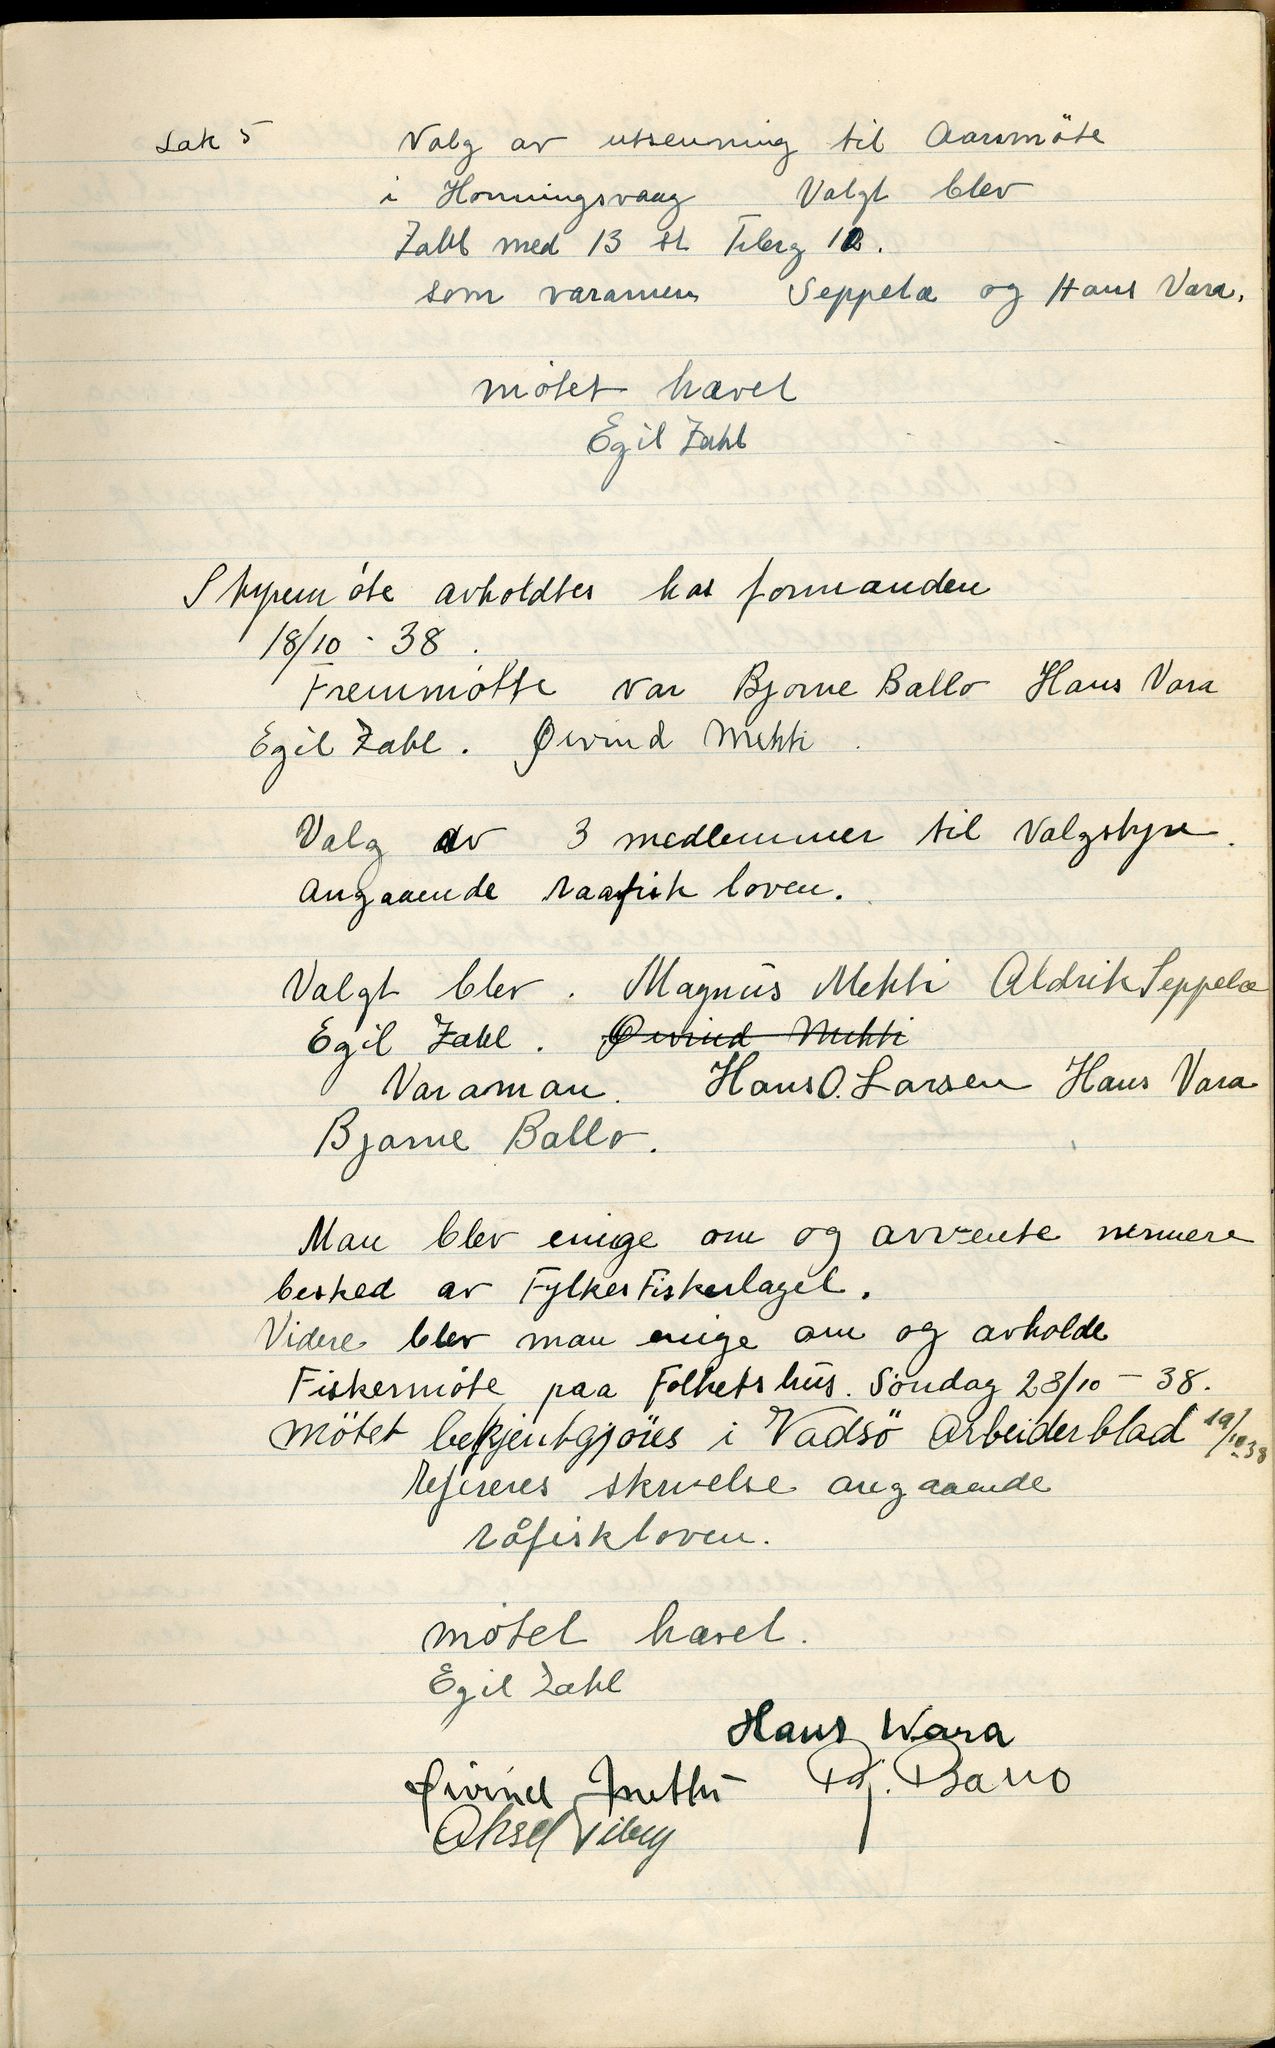 Sak 5 Valg av utsenning til Aarsmöte
i Honningsvaag Valgt blev
Zahl med 13 st Tiberg 12.
som varamen Seppelæ og Hans Vara.
mötet hævet
Egil Zahl
Styremöte avholdtes hos formanden
18/10 - 38.
Fremmötte var Bjarne Ballo Hans Vara
Egil Zahl. Øivind Mekki.
Valg av 3 medlemmer til Valgstyre.
angaaende raafisk loven.
Valgt blev. Magnus Mekki Aldrik Seppelæ
Egil Zahl. Øivind Mekki
Varaman. Hans O. Larsen Hans Vara
Bjarne Ballo.
Man blev enige om og avvente nermere
besked av Fylkes Fiskerlaget.
Videre blev man enige om og avholde
Fiskermöte paa Folkets hus. Söndag 23/10 - 38.
mötet bekjentgjöres i Vadsö Arbeiderblad 19/10-38
Refereres skrivelse angaaende
råfiskloven.
mötet hævet.
Egil Zahl
Hans Wara
Øivind Mekki Bj. Ballo
Aksel Tiberg